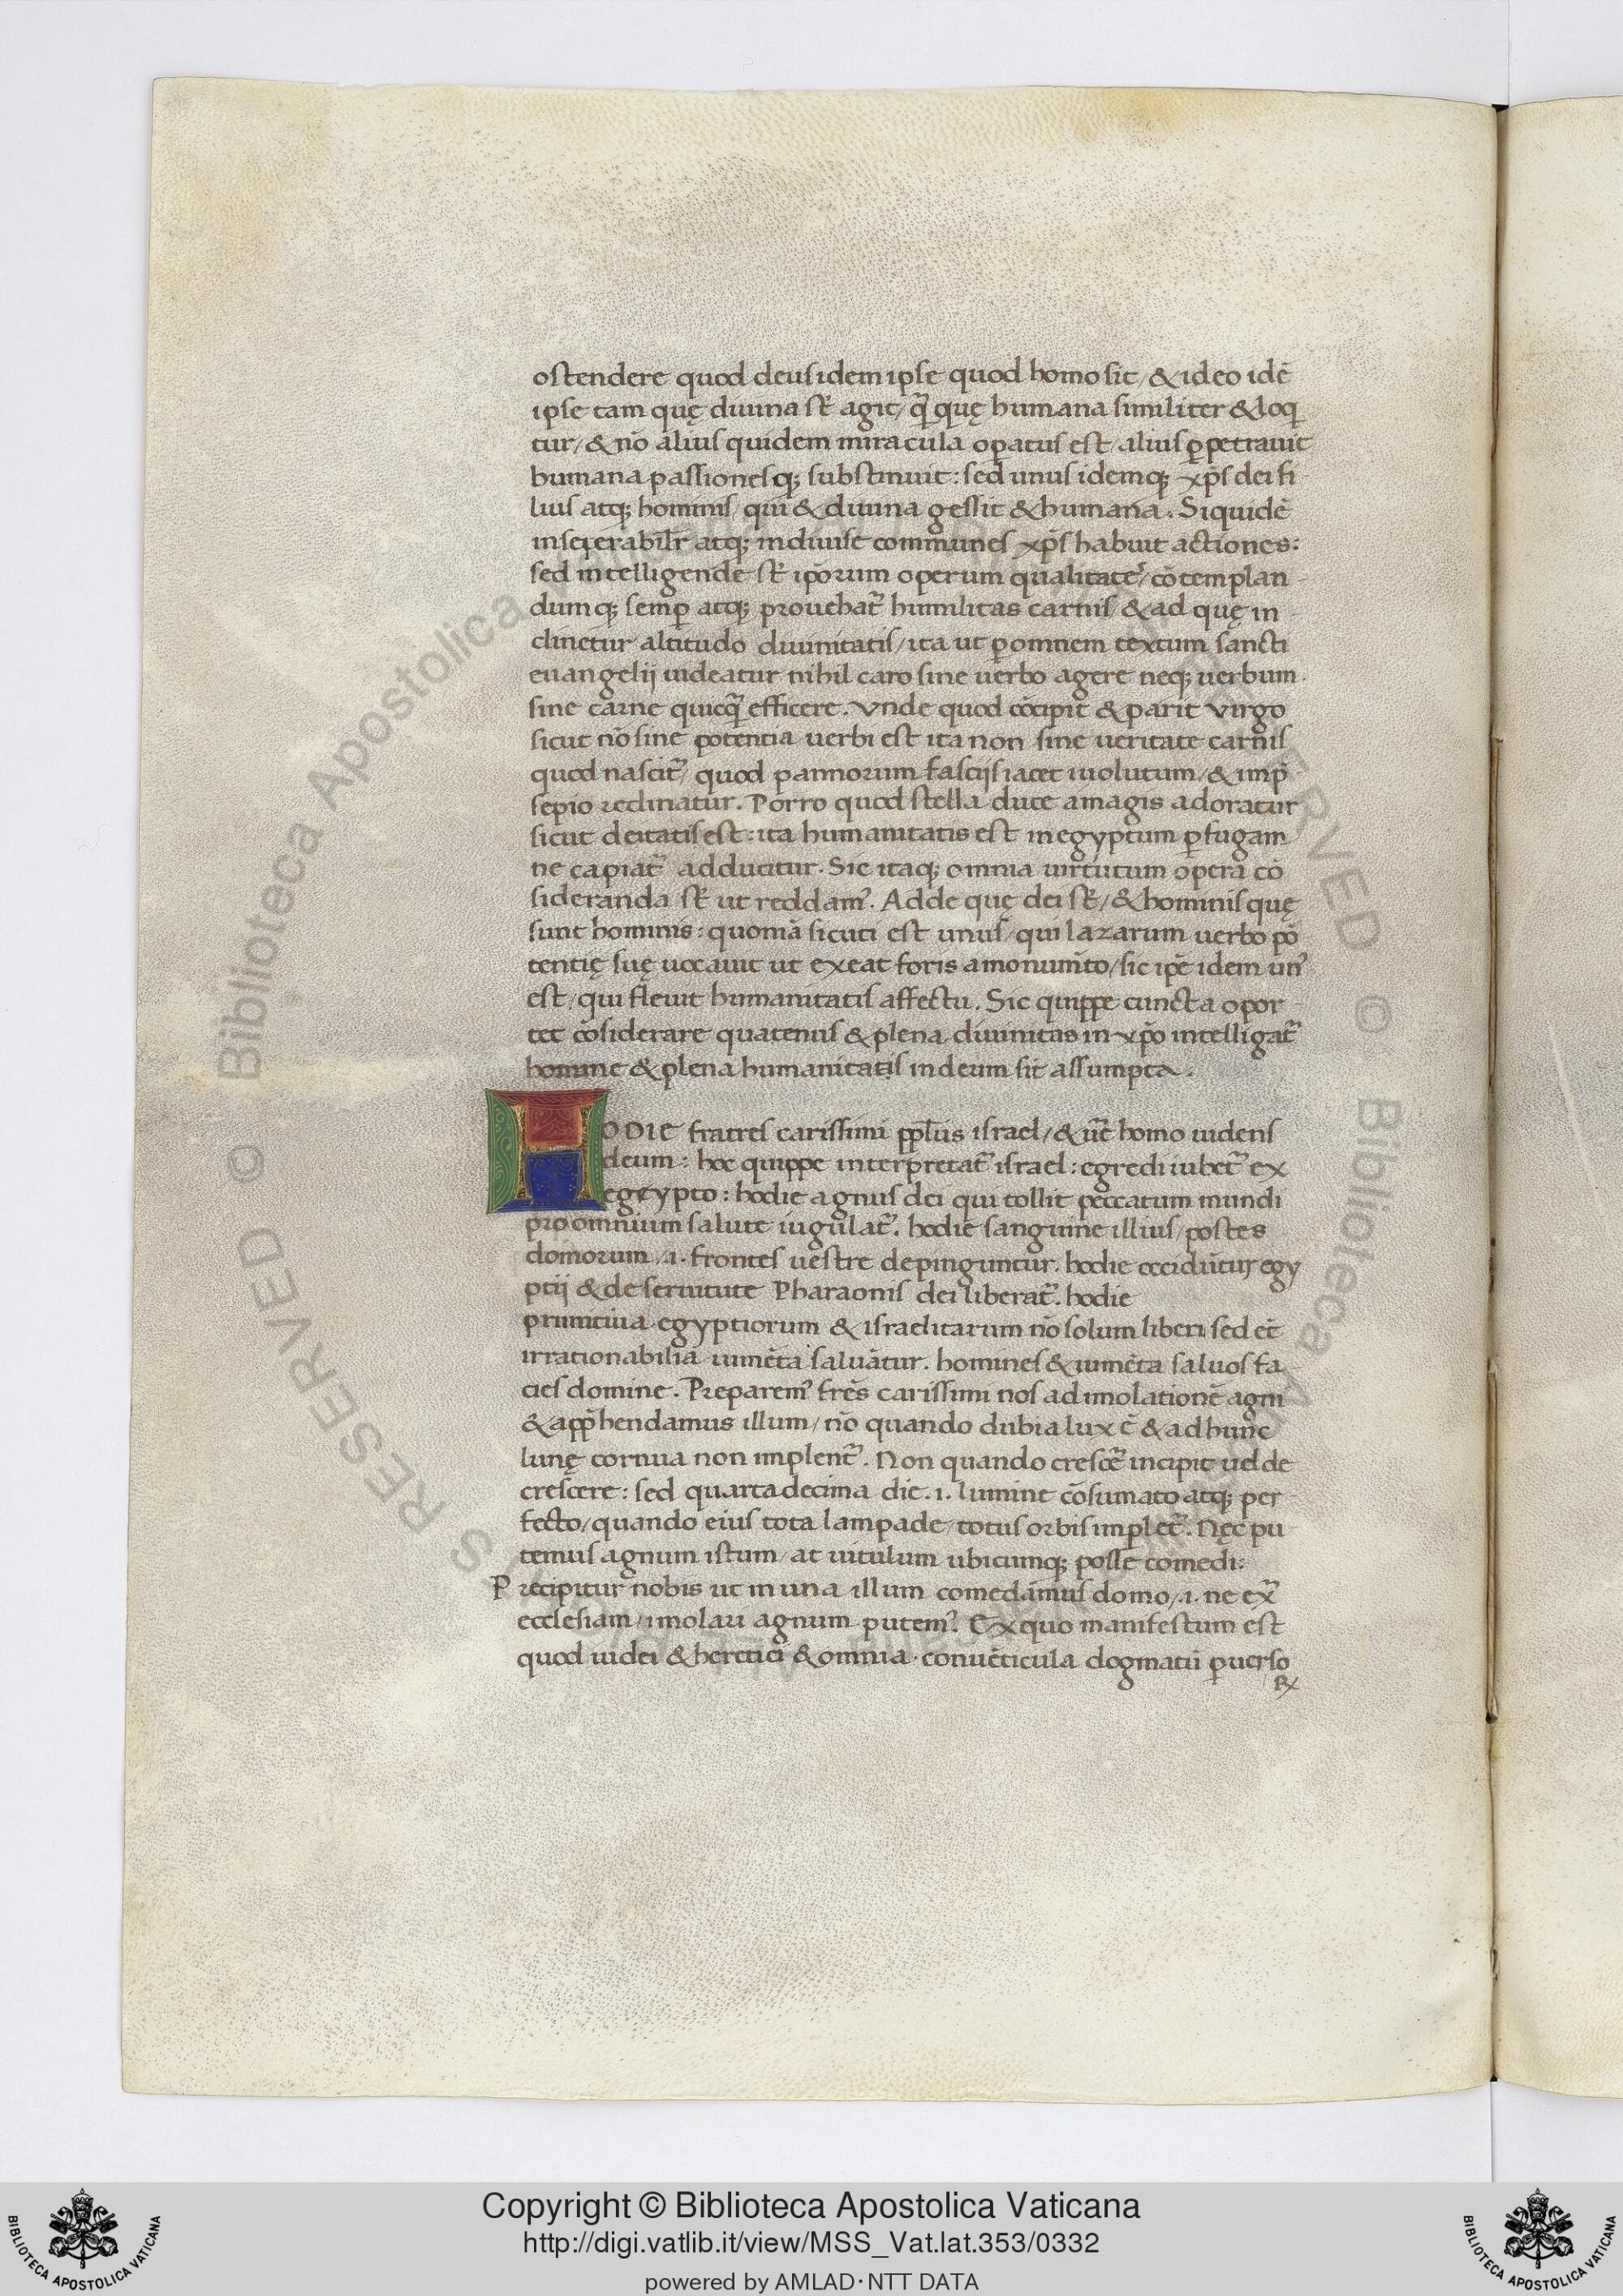 ostendere quod deus idem ipse quod homo sit / & ideo idē
ipse tam quę diuina sт̄ agit / q̄ quę humana similiter & loqͥ
tur / & nō alius quidem miracula oꝑatus est / alius ꝑpetrauit
humana passionesqꝫ substinuit : sed unus idemqꝫ xp̄s dei fi
lius atqꝫ hominis / qui & diuina gessit & humana . Siquidē
inseperabilr̄ atqꝫ indiuise communes xp̄s habuit actiones :
sed intelligende st̄ ip̄orum operum qualitates / cōtemplan
dumqꝫ semꝑ atqꝫ prouehat᷑ humilitas carnis / & ad quę in
clinetur altitudo diuinitatis / ita ut ꝑ omnem textum sancti
euangelij uideatur nihil caro sine uerbo agere neqꝫ uerbum
sine carne quicq̄ efficere . Vnde quod cōcipit & parit Virgo
sicut nō sine potentia uerbi est ita non sine ueritate carnis
quod nascit᷑ / quod pannorum fascijs iacet iuolutum / & in p̄
sepio reclinatur . Porro quod stella duce a magis adoratur
sicut deitatis est : ita humanitatis est in egyptum ꝑ fugam
ne capiat᷑ adducitur . Sic itaqꝫ omnia uirtutum opera cō
sideranda st̄ ut reddamꝰ . Adde quę dei st̄ / & hominis quę
sunt hominis : quoniā sicuti est unus / qui lazarum uerbo po
tentię suę uocauit ut exeat foris a monumēto / sic ip̄e idem unꝰ
est / qui fleuit humanitatis affectu . Sic quippe cuncta opor
tet cōsiderare quatenus & plena diuinitas in xp̄o intelligat᷑
homine & plena humanitatis in deum sit assumpta .
HODIE fratres carissimi pp̄lus israel / & ue̅ homo uidens
deum : hoc quippe interpretat᷑ israel : egredi iubet᷑ ex
egeypto : hodie agnus dei qui tollit peccatum mundi
pro omnium salute iugulat᷑ . hodie sanguine illius / postes
domorum / .i. frontes uestre depinguntur . hodie occidūtur egy
ptij & de seruitute Pharaonis dei liberat᷑ . hodie
primitiua egyptiorum & israelitarum nō solum liberi sed et̄
irrationabilia iumēta saluātur . homines & iumēta saluos fa
cies domine . Preparemꝰ frēs carissimi nos ad imolationē agni
& app̄hendamus illum / nō quando dubia lux ē & adhunc
lunę cornua non implent᷑ . Non quando crescē incipit uel de
crescere : sed quartadecima die .i. lumine cōsumato atqꝫ per
fecto / quando eius tota lampade / totus orbis implet᷑ . Nęc pu
temus agnum istum / at uitulum ubicumqꝫ posse comedi :
Precipitur nobis ut in una illum comedamus domo / .i. ne ex̄
ecclesiam / imolari agnum putemꝰ . Ex quo manifestum est
quod iudei & heretici & omnia conuēticula dogmatū ꝑuerso
ꝝ
Copyright © Biblioteca Apostolica Vaticana
http://digi.vatlib.it/view/MSS_Vat.lat.353/0332
powered by AMLAD·NTT DATA